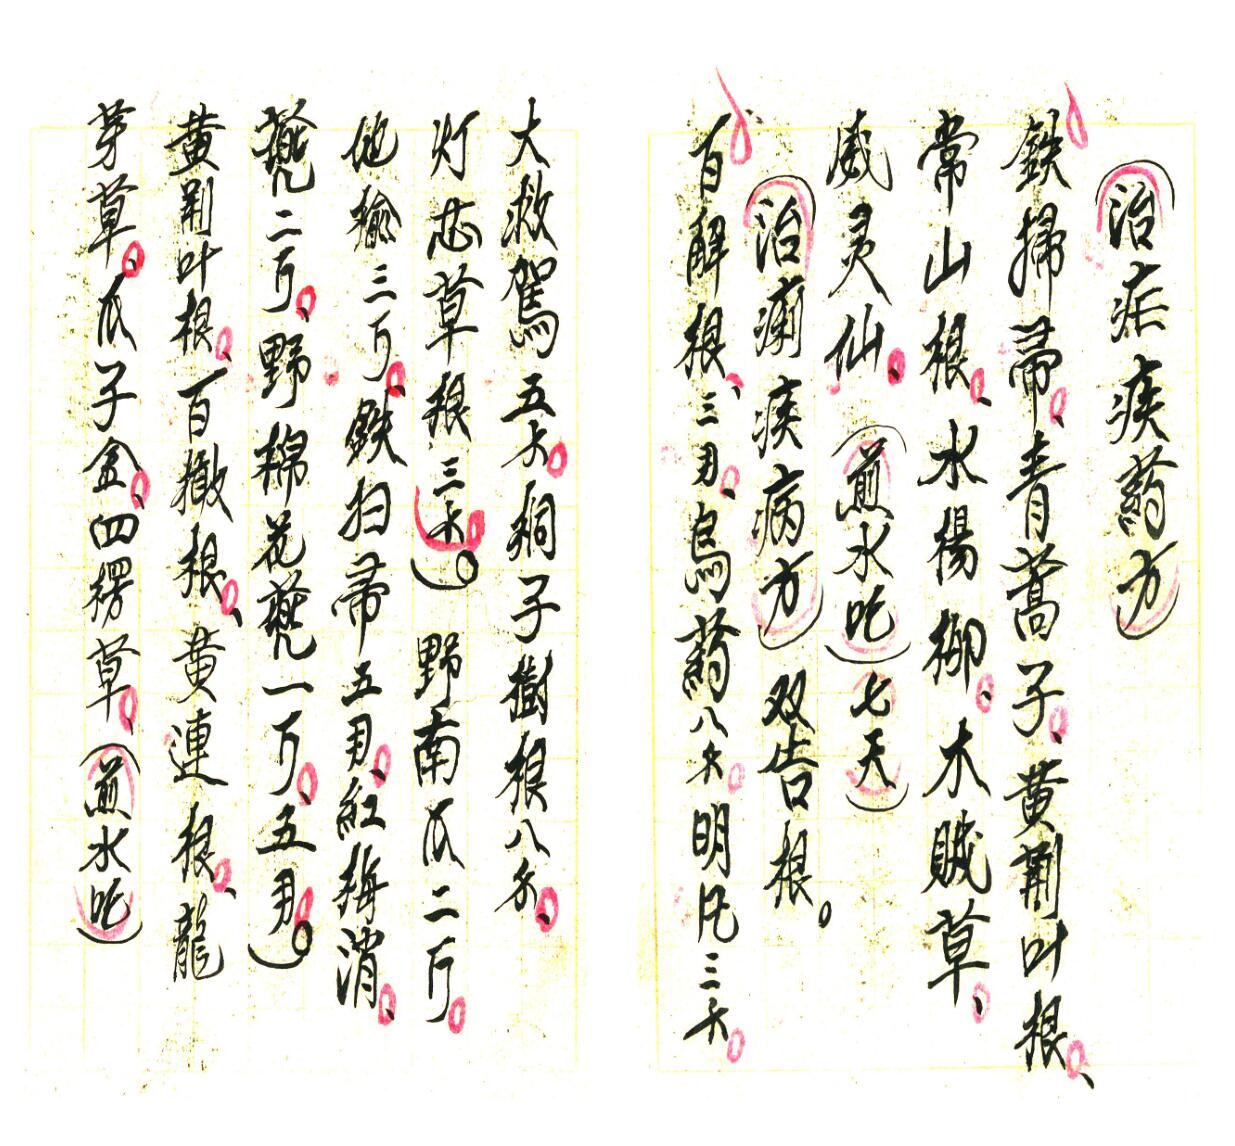 治疟疾药方
鉄掃帚、青蒿子、黄荆叶根、
常山根、水楊柳、木贼草、
威灵仙、煎水吃七天
治痢疾病方 双告根。
百解根、三月、烏药八分明凡三分
大救駕五分桐子樹根八分、
灯芯草根三分 野南瓜二斤
地榆三斤、鉄扫帚五月、紅消
蔸二斤、野棉花蔸一斤、五月
黄荆叶根、百撒根、黄連根、龍
芽草、瓜子金、四楞草、煎水吃